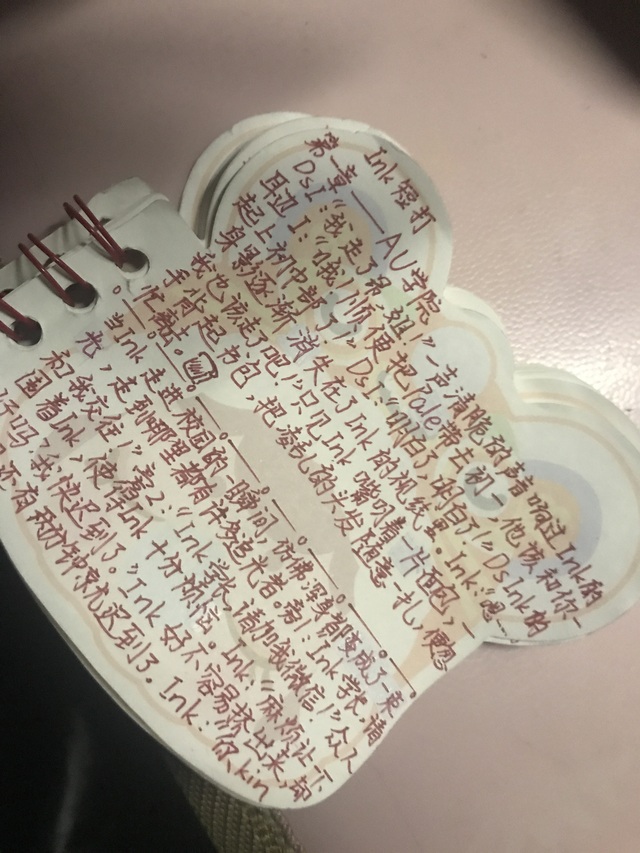 Ink 短打
第一章——AU学院
DsI:“我走了哥、姐!”一声清脆的声音响过Ink的
耳边 I:“哦!顺便把Pale带去初一,他该和你一
起上初中部了!”DsI:“明白了,明白了!”DsInk的
身影逐渐消失在了Ink的视线里。Ink:“嗯…
我也该走了吧!”只见Ink嘴叼着一片面包,一
手背起书包,把凌乱的头发随意一扎,便急
忙离去。
当Ink走进校园的一瞬间,仿佛浑身都变成了一束
光,走到哪里都有许多追光者。旁1:Ink学长,请
和我交往!”旁2:“Ink学长,请加我微信!”众人
围着Ink,使得Ink十分烦恼。Ink:“麻烦让一下
行吗?我快迟到了。”Ink好不容易挤出来,却
还有两分钟就迟到了。Ink:你kin